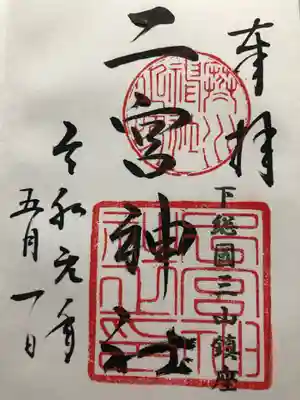 奉拝
下総國三山鎮座
二宮神社
令和元年
五月一日